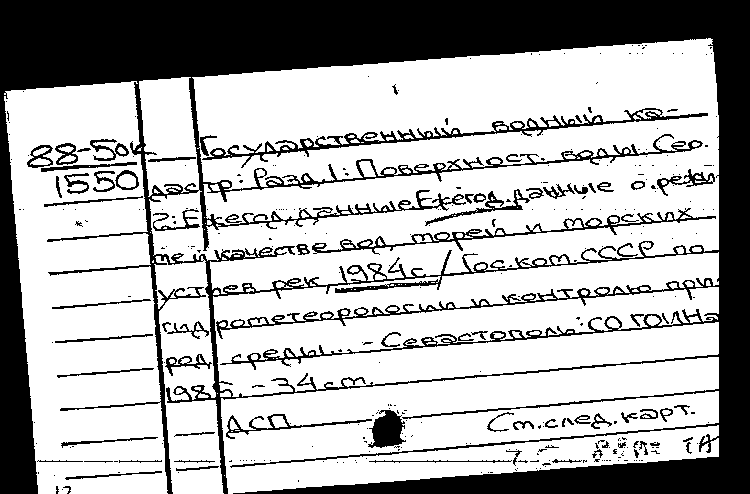 88-5ок Государственный водный ка-
1550 дастр: Разд. 1: Поверхност. воды. Сер.
2: Ежегод. данные. Ежегод. данные о режи
ме и качестве вод, морей и морских
устьев рек, 1984 с / Гос.ком. СССР по
гидрометеорологии и контролю при.
род. среды... - Севастополь: СО ГОИНа
1985. - 34 ст.
ДСП
См. след. карт.
12